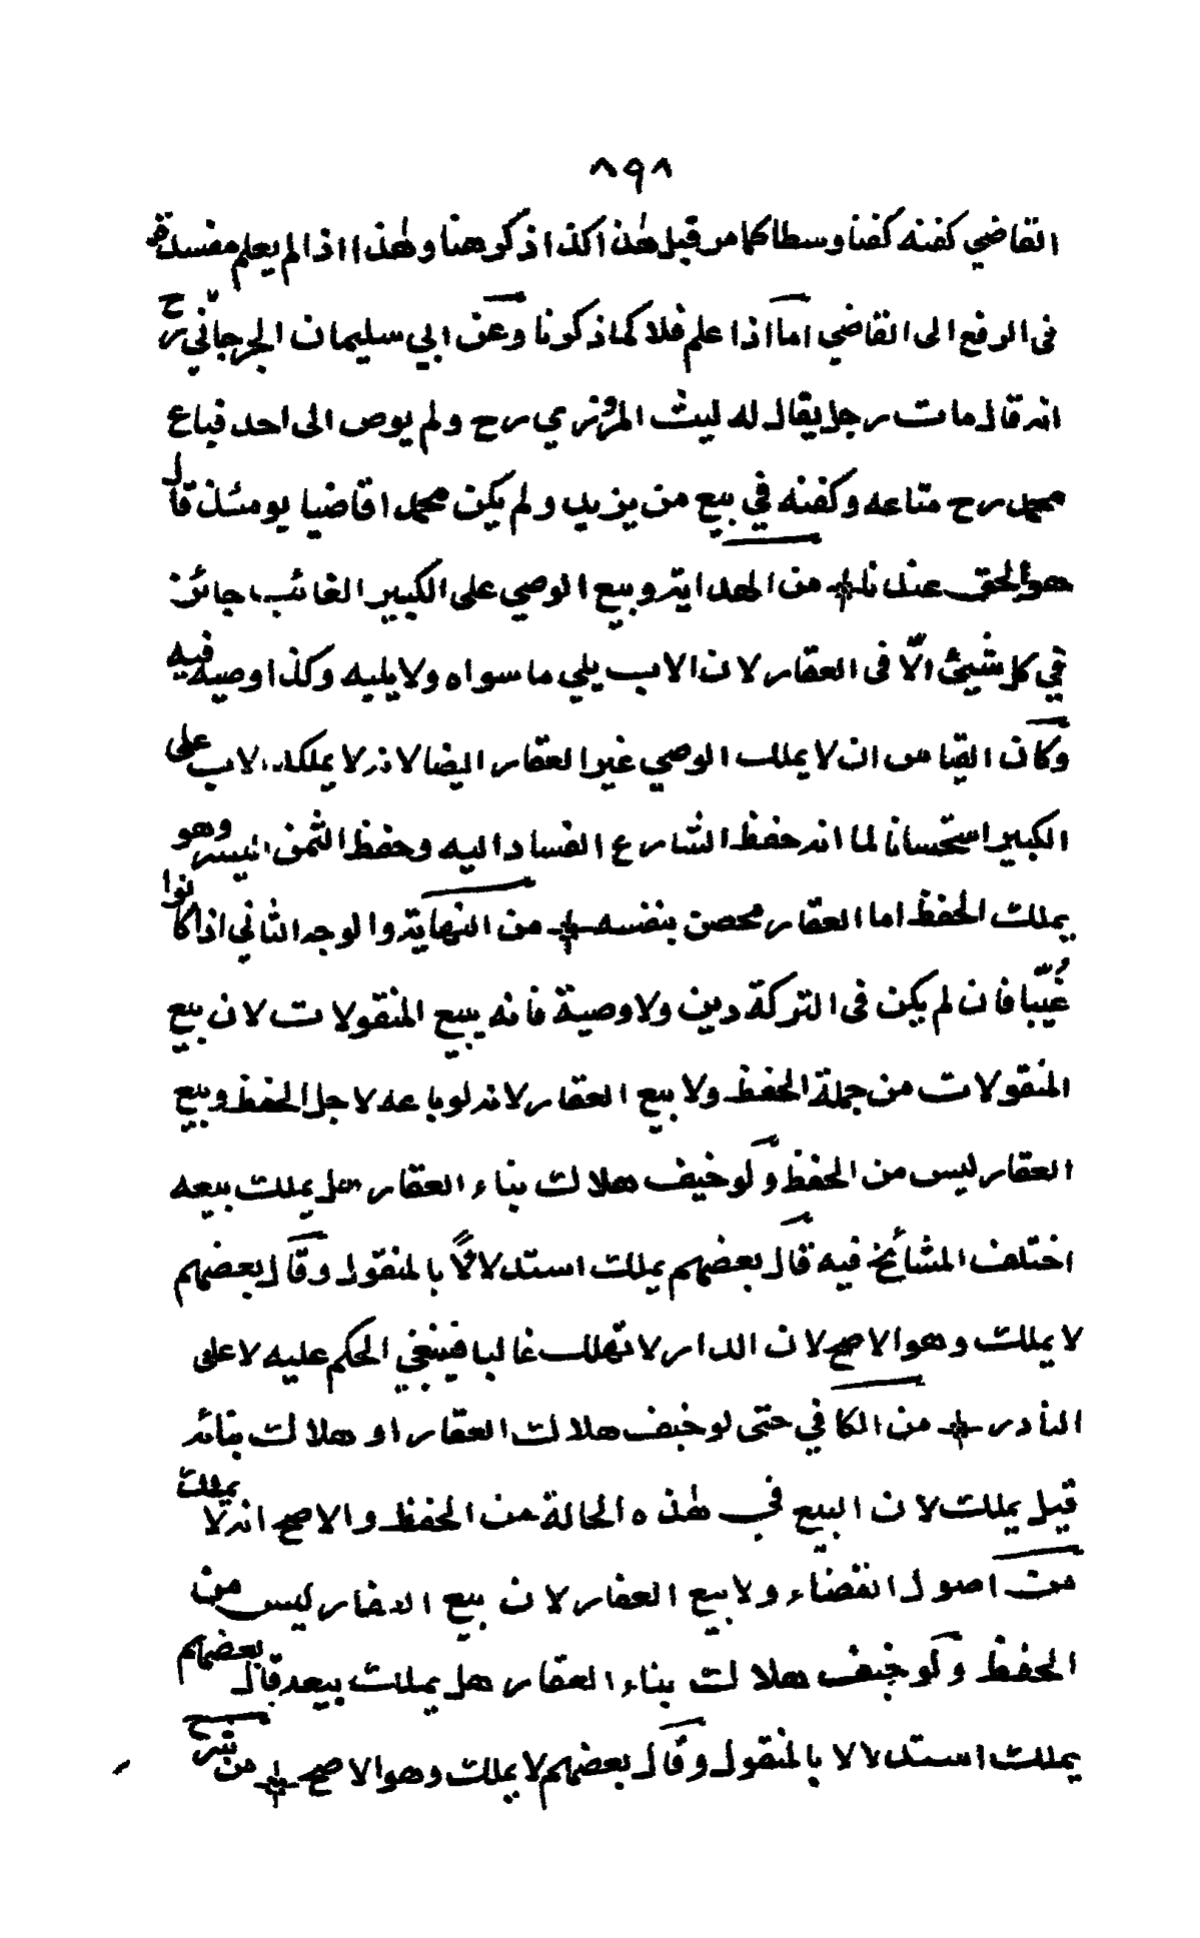 ٨٩٨
القاضي كفنه كفنا وسطا كما مر قبل هٰذا كذا ذكر هنا وهٰذا اذا لم يعلم مفسدة
فى الرفع الى القاضي اما اذا علم فلا كما ذكرنا وعن ابي سليمان الجرجاني رح
انه قال مات رجل يقال له ليث المروزي رح ولم يوص الى احد فباع
محمد رح متاعه وكفنه في بيع من يزيد ولم يكن محمد قاضيا يومئذ قال
هو الحق عندنا من الهداية وبيع الوصي على الكبير الغائب جائز
في كل شيئ الّا فى العقار لان الاب يلي ما سواه ولا يليه وكذا وصيه فيه
وكان القياس ان لا يملك الوصي غير العقار ايضا لانه لا يملكه الاب على
الكبير استحسانا لما انه حفظ التسارع الفساد اليه وحفظ الثمن ايسر وهو
يملك الحفظ اما العقار محصن بنفسه من النهاية والوجه الثاني اذا كانوا
غُيّبا فان لم يكن فى التركة دين ولا وصية فانه يبيع المنقولات لان بيع
المنقولات من جملة الحفظ ولا بيع العقار لانه لو باعه لاجل الحفظ وبيع
العقار ليس من الحفظ ولو خيف هلاك بناء العقار هل يملك بيعه
اختلف المشائخ فيه قال بعضهم يملك استدلالًا بالمنقول وقال بعضهم
لا يملك وهو الاصح لان الدار لا تهلك غالبا فينبغي الحكم عليه لا على
النادر من الكافي حتى لو خيف هلاك العقار او هلاك بنائه
قيل يملك لان البيع في هٰذه الحالة من الحفظ والاصح انه لا يملك
من اصول القضاء ولا بيع العقار لان بيع العقار ليس من
الحفظ ولو خيف هلاك بناء العقار هل يملك بيعه قال بعضهم
يملك استدلالا بالمنقول وقال بعضهم لا يملك وهو الاصح من شرح